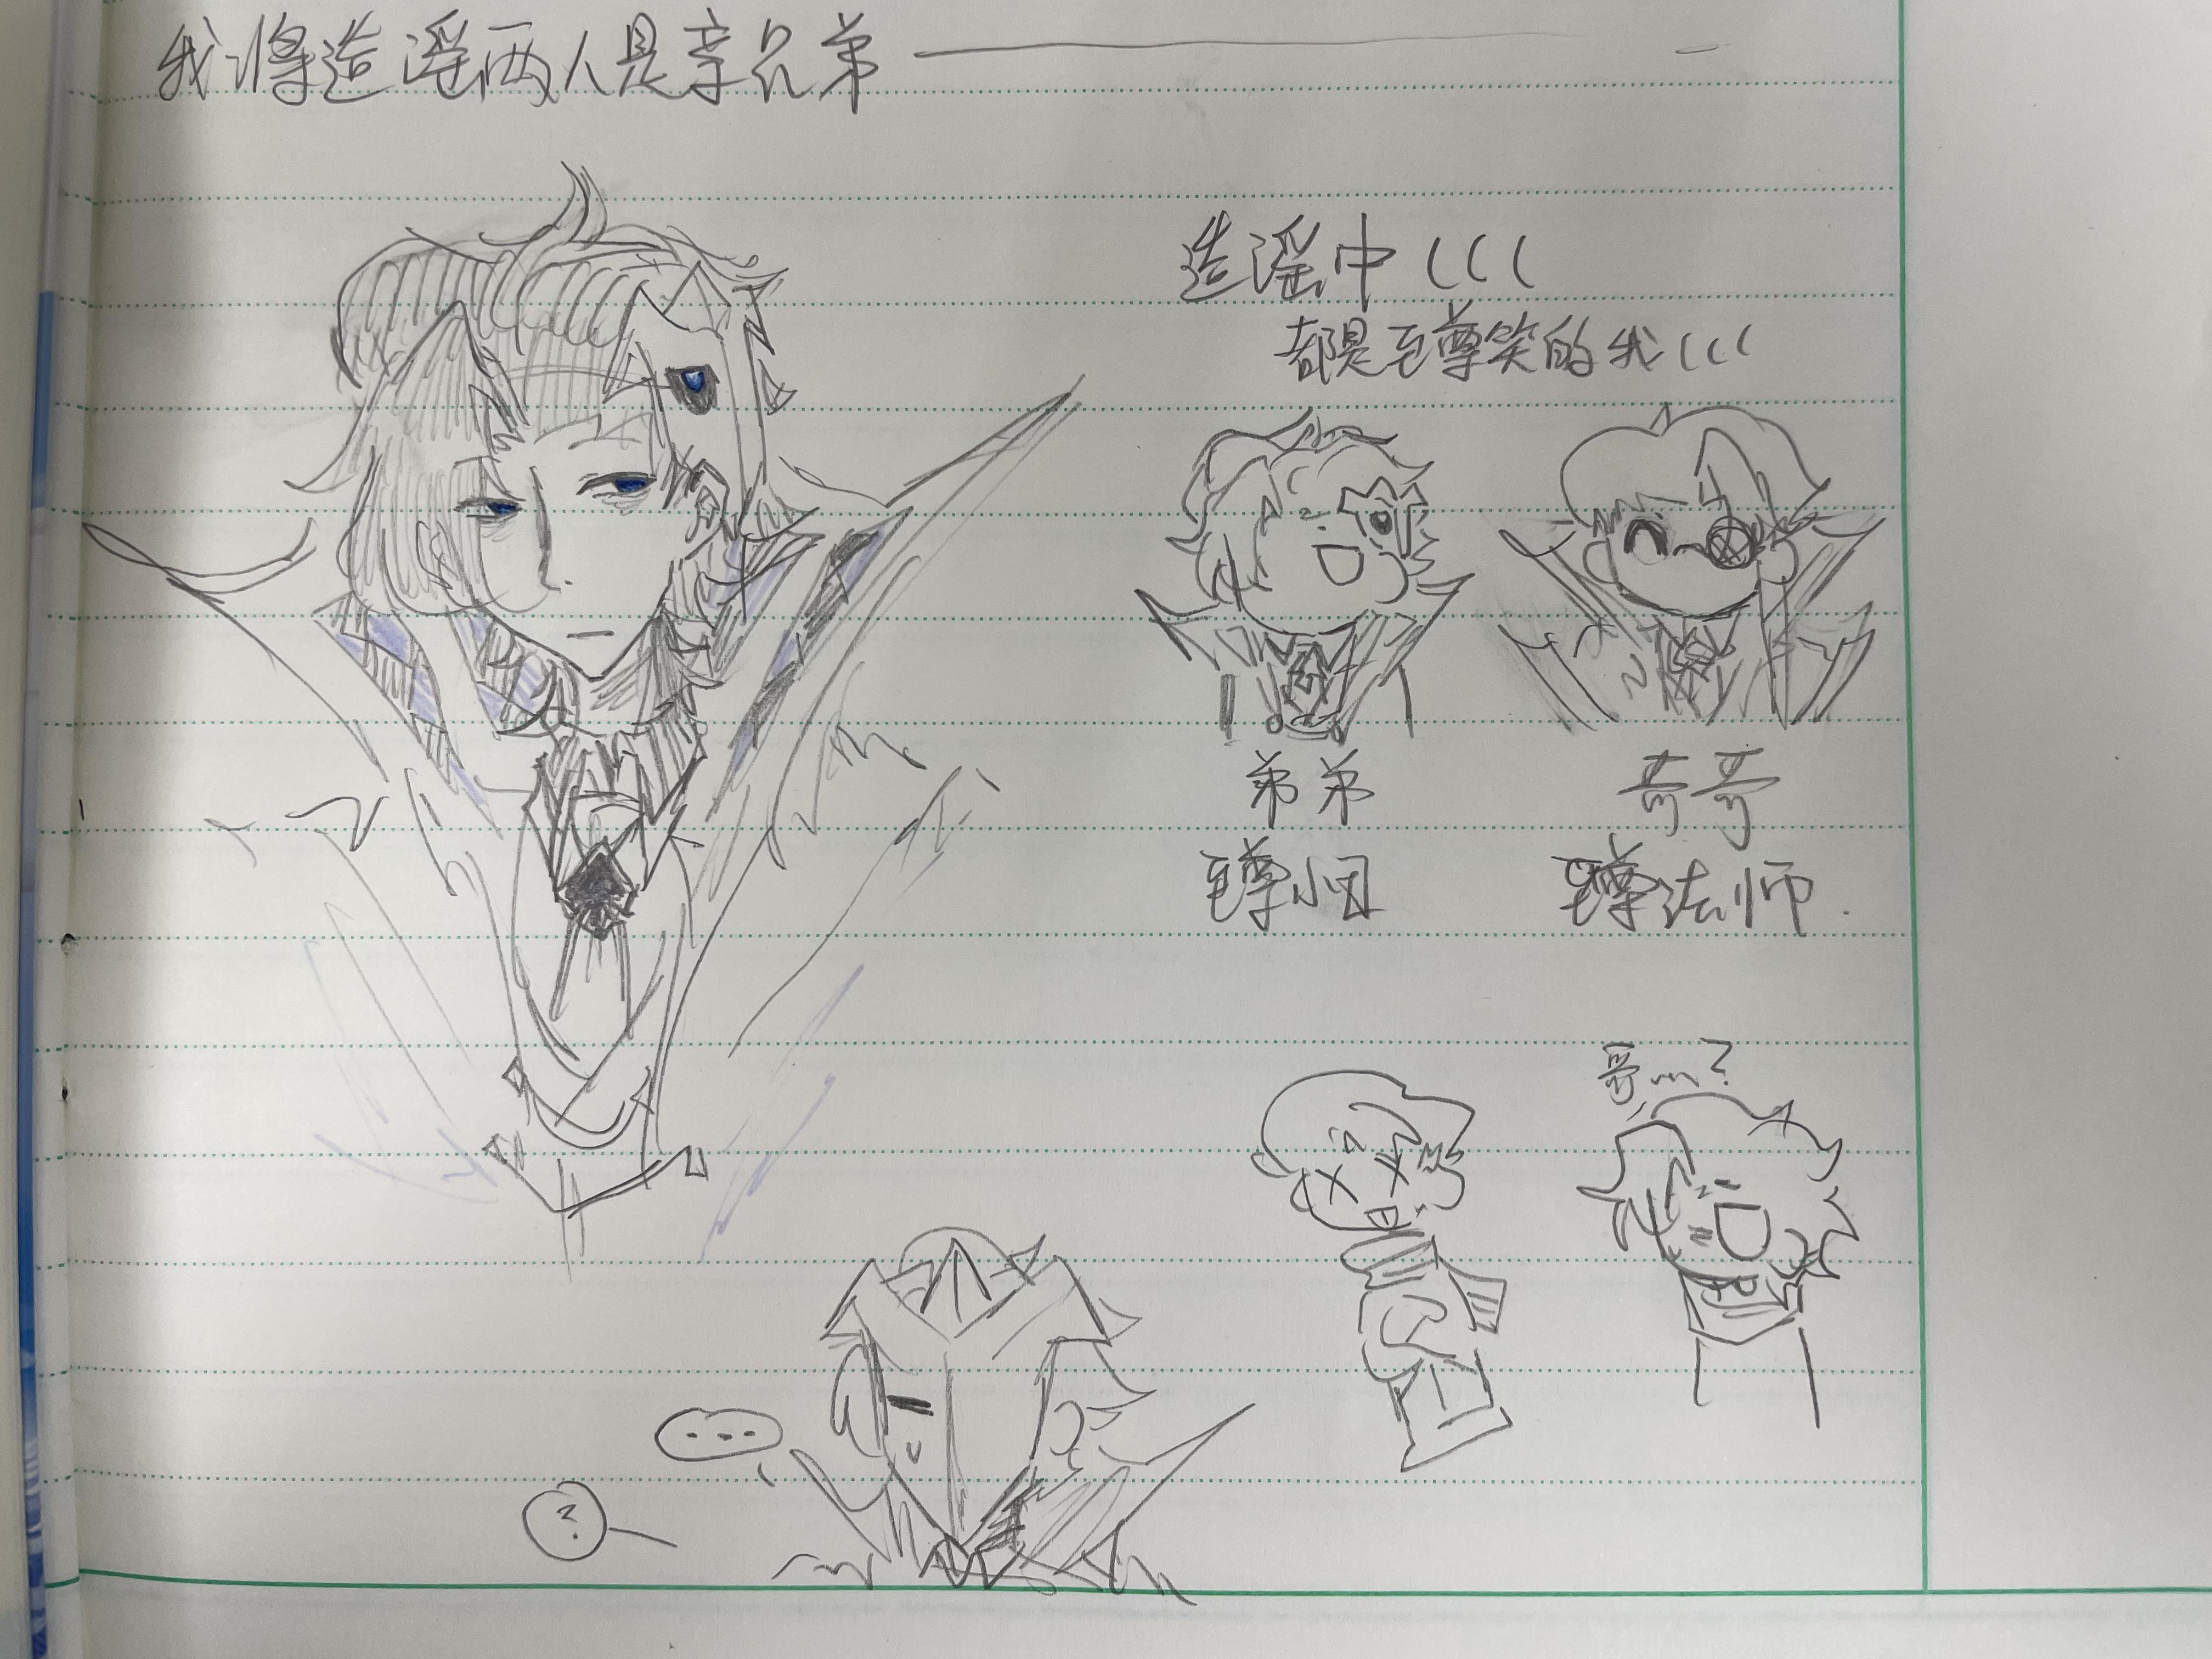 我将造谣两人是亲兄弟——
造谣中(((
都是至尊笑的我(((
弟弟
哥哥
至尊小丑
至尊法师.
哥…?
...
?